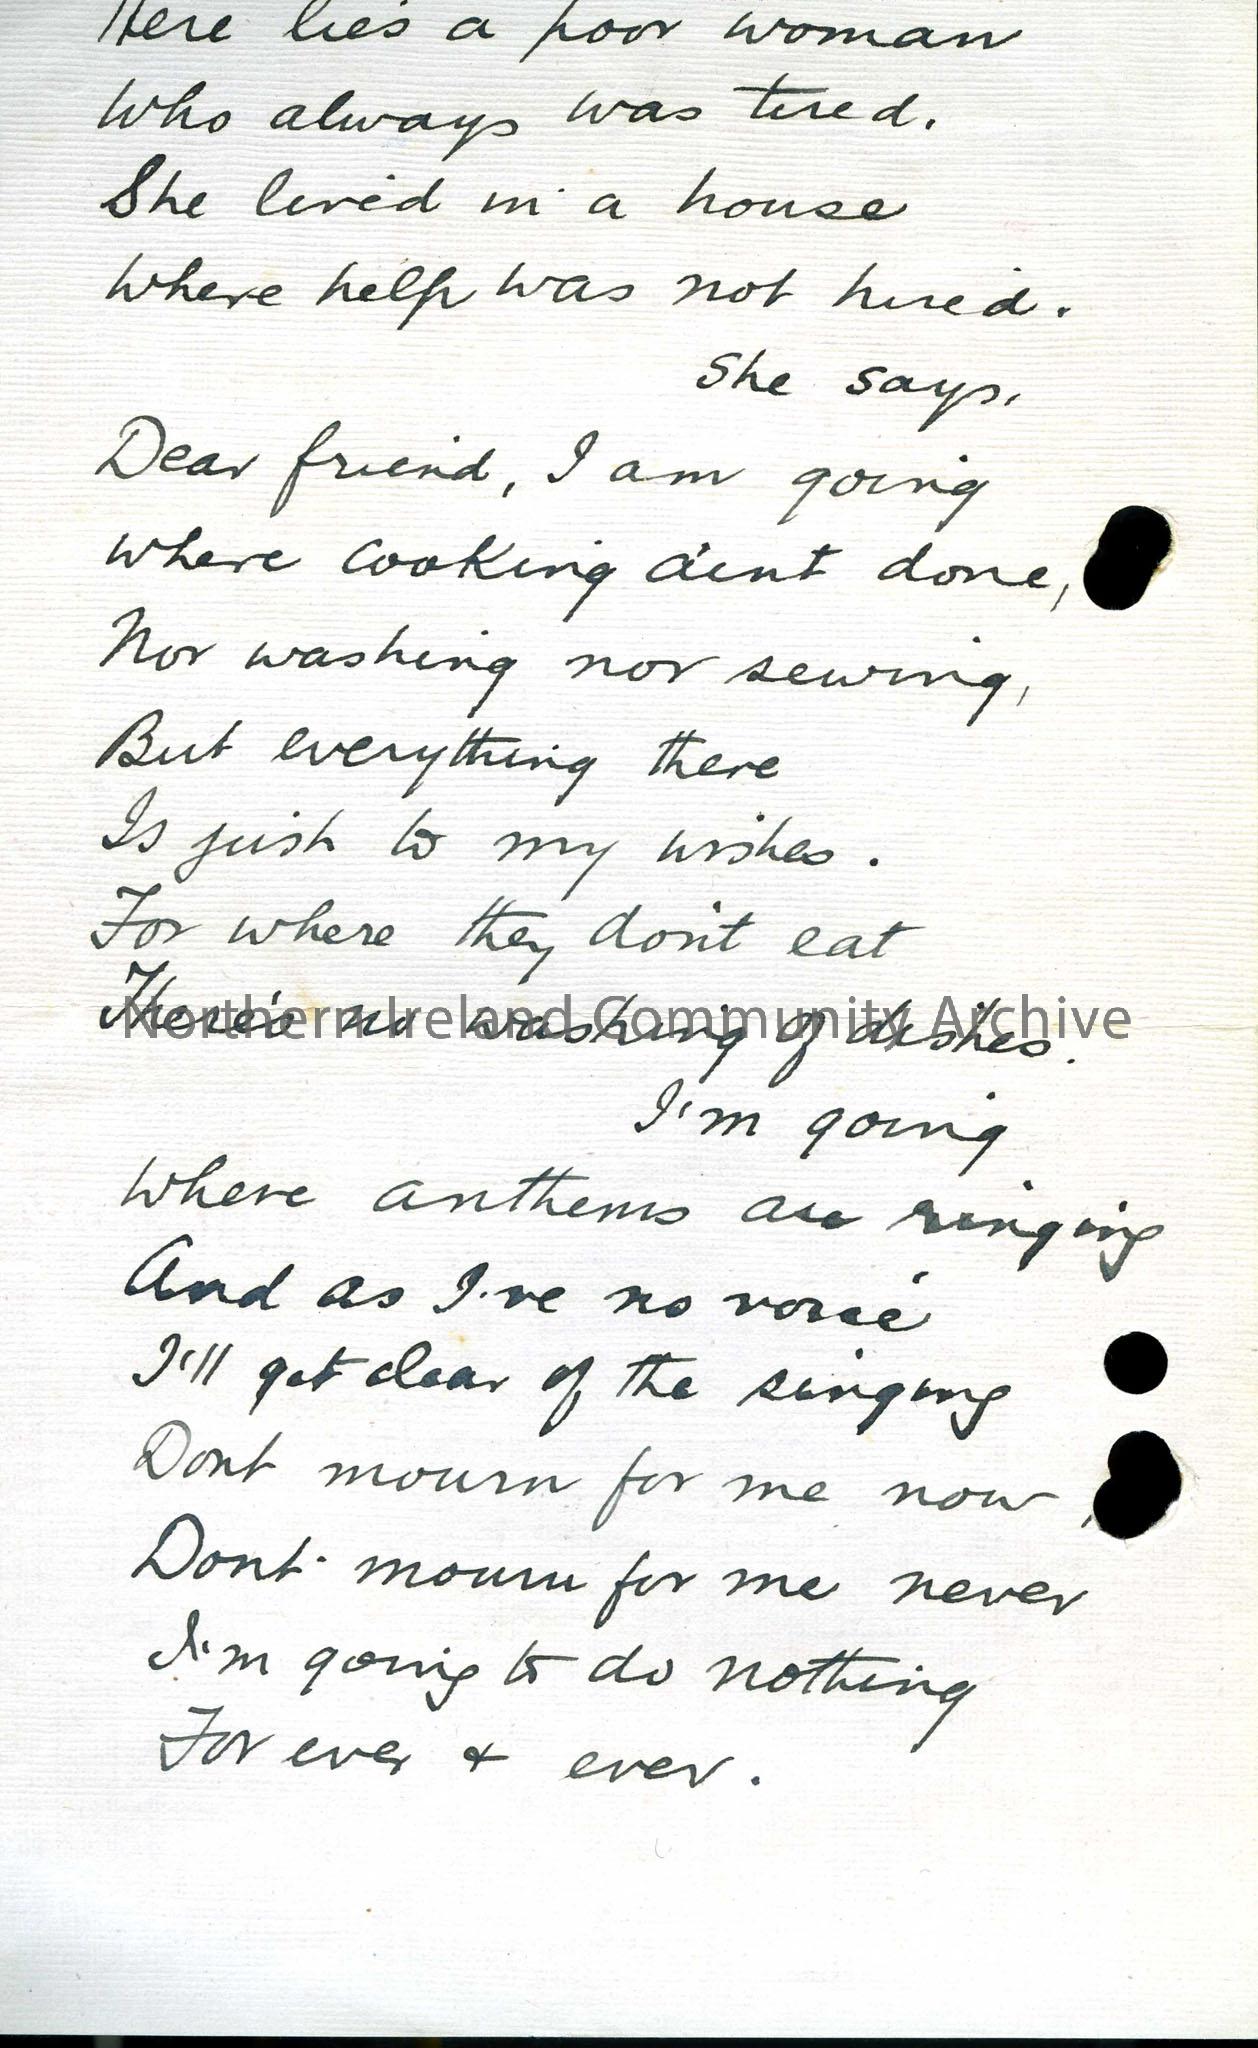 Here lies a poor woman
Who always was tired.
She lived in a house
Where help was not hired.
She says,
Dear friend, I am going
Where cooking ain't done,
Nor washing nor sewing,
But everything there
Is just to my wishes.
For where they don't eat
There's no washing of dishes.
Northern Ireland Community Archive
I'm going
Where anthems are ringing
And as I've no voice
I'll get clear of the singing
Dont mourn for me now,
Dont mourn for me never
I'm going to do nothing
For ever & ever.